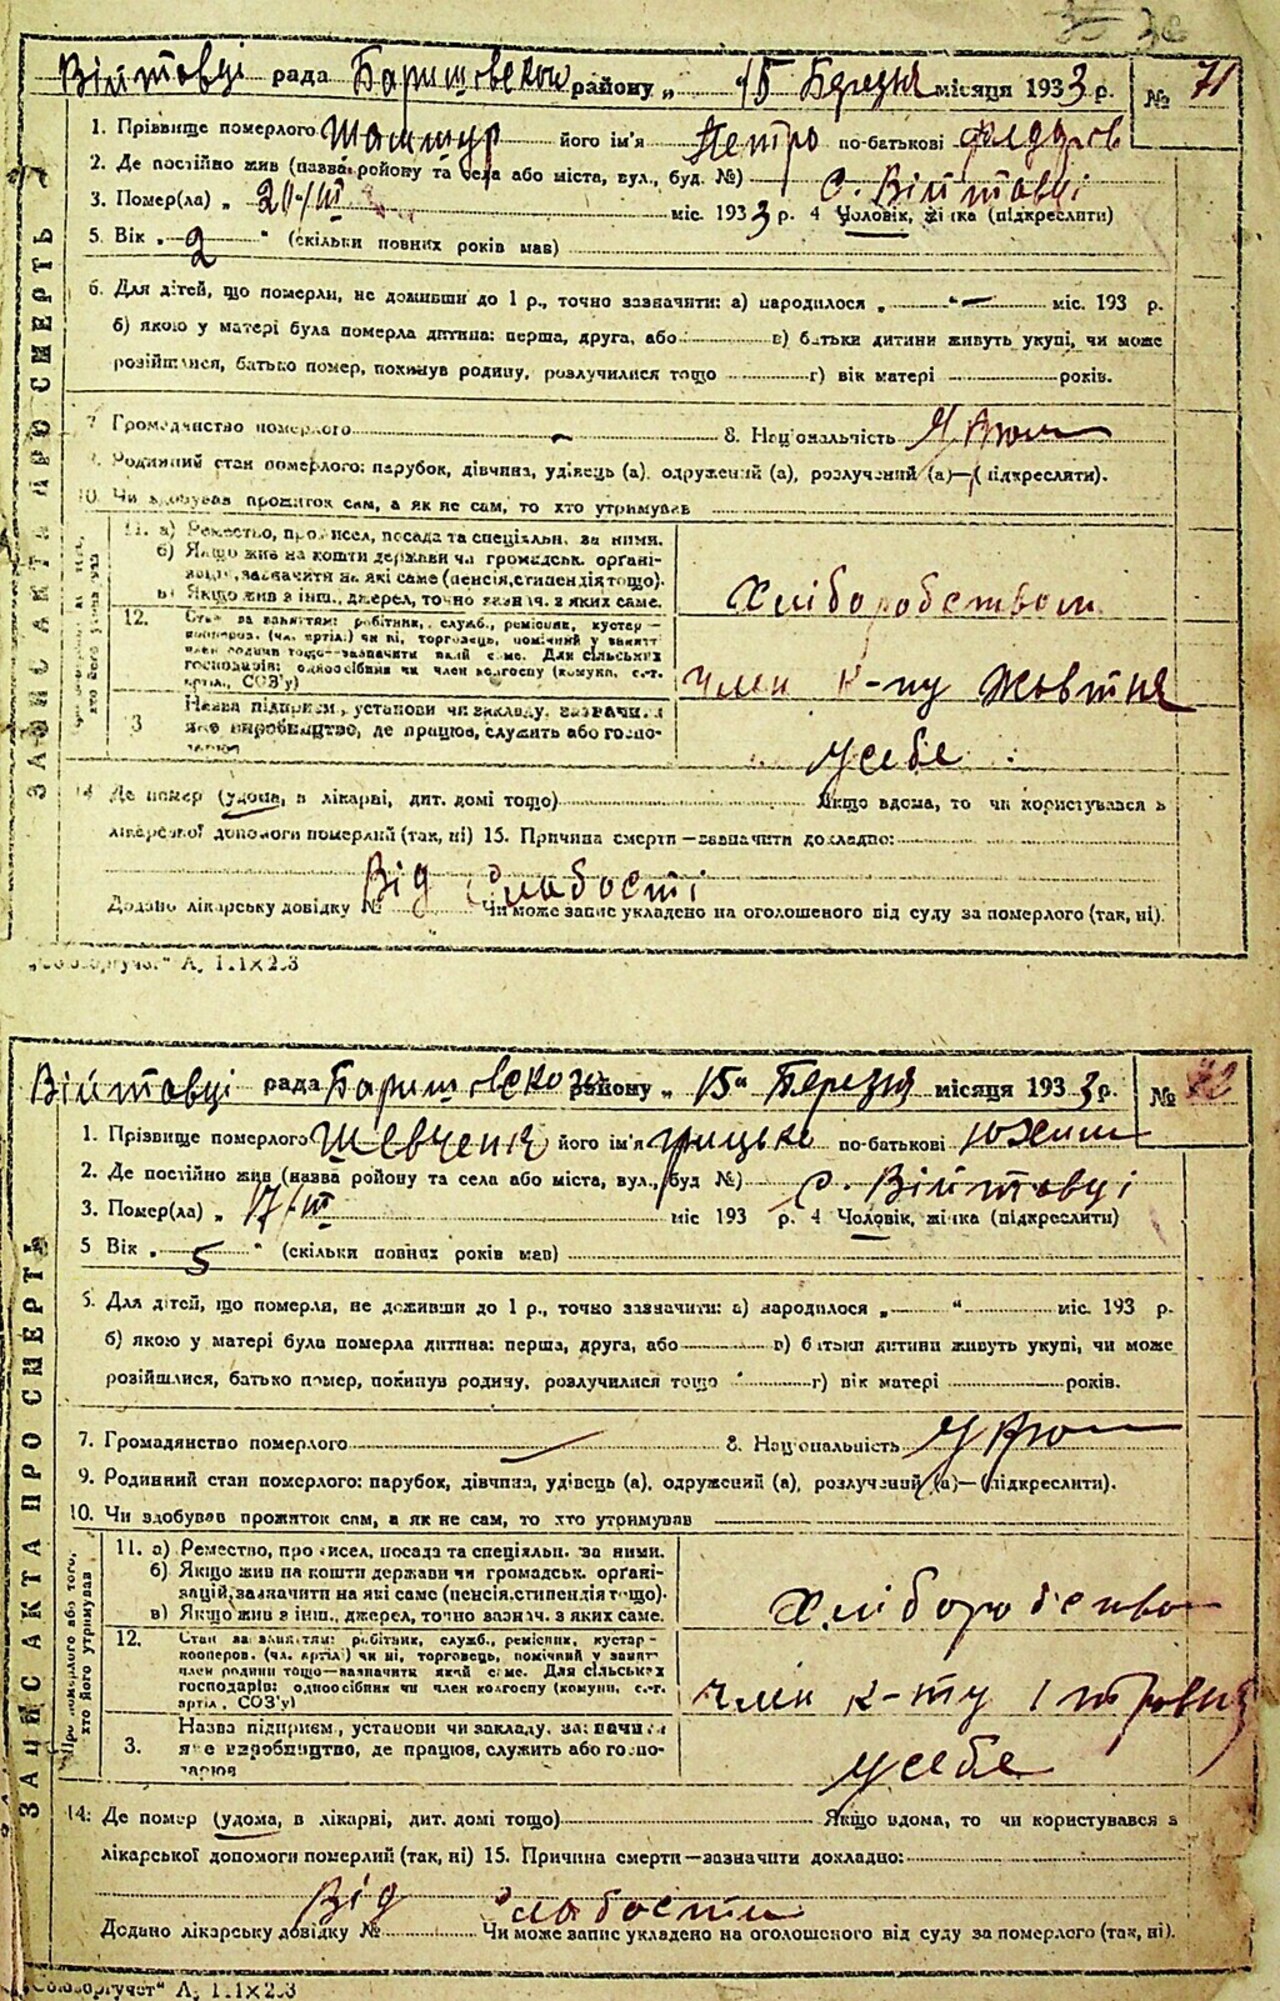 Війтовці рада Баришовської району „ 15 Березня місяця 1933 р. № 71
1. Прізвище померлого його ім'я Петро по-батькові
2. Де постійно жив (назва ройону та села або міста, вул., буд. №) с. Війтовці
3. Помер(ла) „ 20/III міс. 1933 р. 4 Чоловік, жінка (підкреслити)
5. Вік „ 2 " (скільки повних років мав)
6. Для дітей, що померли, не доживши до 1 р., точно зазначити: а) народилося „ " — міс. 193 р.
б) якою у матері була померла дитина: перша, друга, або в) батьки дитини живуть укупі, чи може
розійшлися, батько помер, покинув родину, розлучилися тощо г) вік матері років.
7 Громадянство померлого - 8. Національність Укр
9. Родинний стан померлого: парубок, дівчина, удівець (а), одружений (а), розлучений (а)—(підкреслити).
10. Чи здобував прожиток сам, а як не сам, то хто утримував
ЗАПИС АКТА ПРО СМЕРТЬ
11. а) Ремество, промисел, посада та спеціяльн. за ними.
б) Якщо жив на кошти держави чи громадськ. орґані-
зацій, зазначити на які саме (пенсія, стипендія тощо).
в) Якщо жив з інш. джерел, точно зазнач. з яких саме.
Хліборобством
12. Стан за заняттям: робітник, служб., ремісник, кустар—
кооперов. (чл. артіл.) чи ні, торговець, помічний у занятт
член родини тощо—зазначити який саме. Для сільських
господарів: одноосібник чи член колгоспу (комуни, с.-г.
артіл., СОЗ'у)
член к-пу Жовтня
13 Назва підприєм., установи чи закладу, зазначити
яке виробництво, де працює, служить або госпо-
дарює
У себе
14 Де помер (удома, в лікарні, дит. домі тощо) Якщо вдома, то чи користувався з
лікарської допомоги померлий (так, ні) 15. Причина смерти—зазначити докладно:
Від слабості
Додано лікарську довідку № Чи може запис укладено на оголошеного від суду за померлого (так, ні).
„Союзоргучет" А, 1.1×2.3
Війтовці рада Баришовської району „ 15" Березня місяця 1933 р. № 72
1. Прізвище померлого Шевченко його ім'я Грицько по-батькові
2. Де постійно жив (назва ройону та села або міста, вул., буд №) с. Війтовці
3. Помер(ла) „ 17/III міс 193 р. 4 Чоловік, жінка (підкреслити)
5 Вік „ 5 " (скільки повних років мав)
6. Для дітей, що померли, не доживши до 1 р., точно зазначити: а) народилося „ " міс. 193 р.
б) якою у матері була померла дитина: перша, друга, або в) батьки дитини живуть укупі, чи може
розійшлися, батько помер, покинув родину, розлучилися тощо г) вік матері років.
7. Громадянство померлого — 8. Національність Укр
9. Родинний стан померлого: парубок, дівчина, удівець (а), одружений (а), розлучений (а)—(підкреслити).
10. Чи здобував прожиток сам, а як не сам, то хто утримував
ЗАПИС АКТА ПРО СМЕРТЬ
Про померлого або того,
хто його утримував
11. а) Ремество, промисел, посада та спеціяльн. за ними.
б) Якщо жив на кошти держави чи громадськ. орґані-
зацій, зазначити на які саме (пенсія, стипендія тощо).
в) Якщо жив з інш. джерел, точно зазнач. з яких саме.
Хліборобство
12. Стан за заняттям: робітник, служб., ремісник, кустар—
кооперов. (чл. артіл) чи ні, торговець, помічний у занятт
член родини тощо—зазначити який саме. Для сільських
господарів: одноосібник чи член колгоспу (комуни, с.-г.
артіл., СОЗ'у)
член к-ту 1 травня
3. Назва підприєм., установи чи закладу, зазначити
яке виробництво, де працює, служить або госпо-
дарює
У себе
14. Де помер (удома, в лікарні, дит. домі тощо) Якщо вдома, то чи користувався з
лікарської допомоги померлий (так, ні) 15. Причина смерти—зазначити докладно:
Від слабости
Додано лікарську довідку № Чи може запис укладено на оголошеного від суду за померлого (так, ні).
„Союзоргучет" А, 1.1×2.3